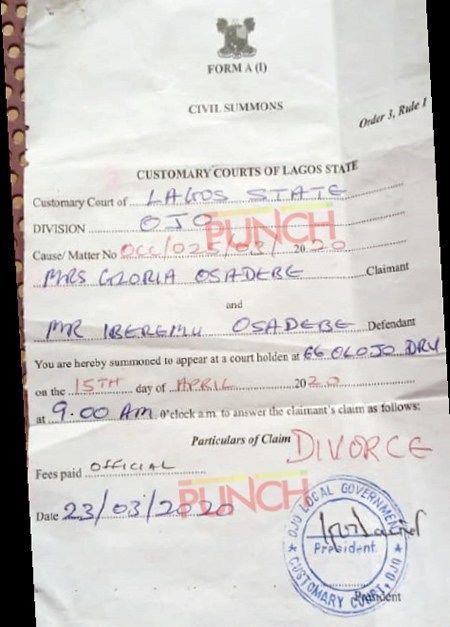 FORM A (I)
CIVIL SUMMONS
Order 3, Rule 1
CUSTOMARY COURTS OF LAGOS STATE
Customary Court of LAGOS STATE
DIVISION OJO
PUNCH
Cause/ Matter No OCC/025/03/ 2020
MRS GLORIA OSADEBE Claimant
and
MR IBEREMU OSADEBE Defendant
You are hereby summoned to appear at a court holden at 66 OLOJO DRV
on the 15TH day of APRIL 2020
at 9.00 AM O'clock a.m. to answer the claimant's claim as follows:
Particulars of Claim DIVORCE
Fees paid OFFICIAL
PUNCH
Date 23/03/2020
OJO LOCAL GOVERNMENT
President
CUSTOMARY COURT, OJO
President